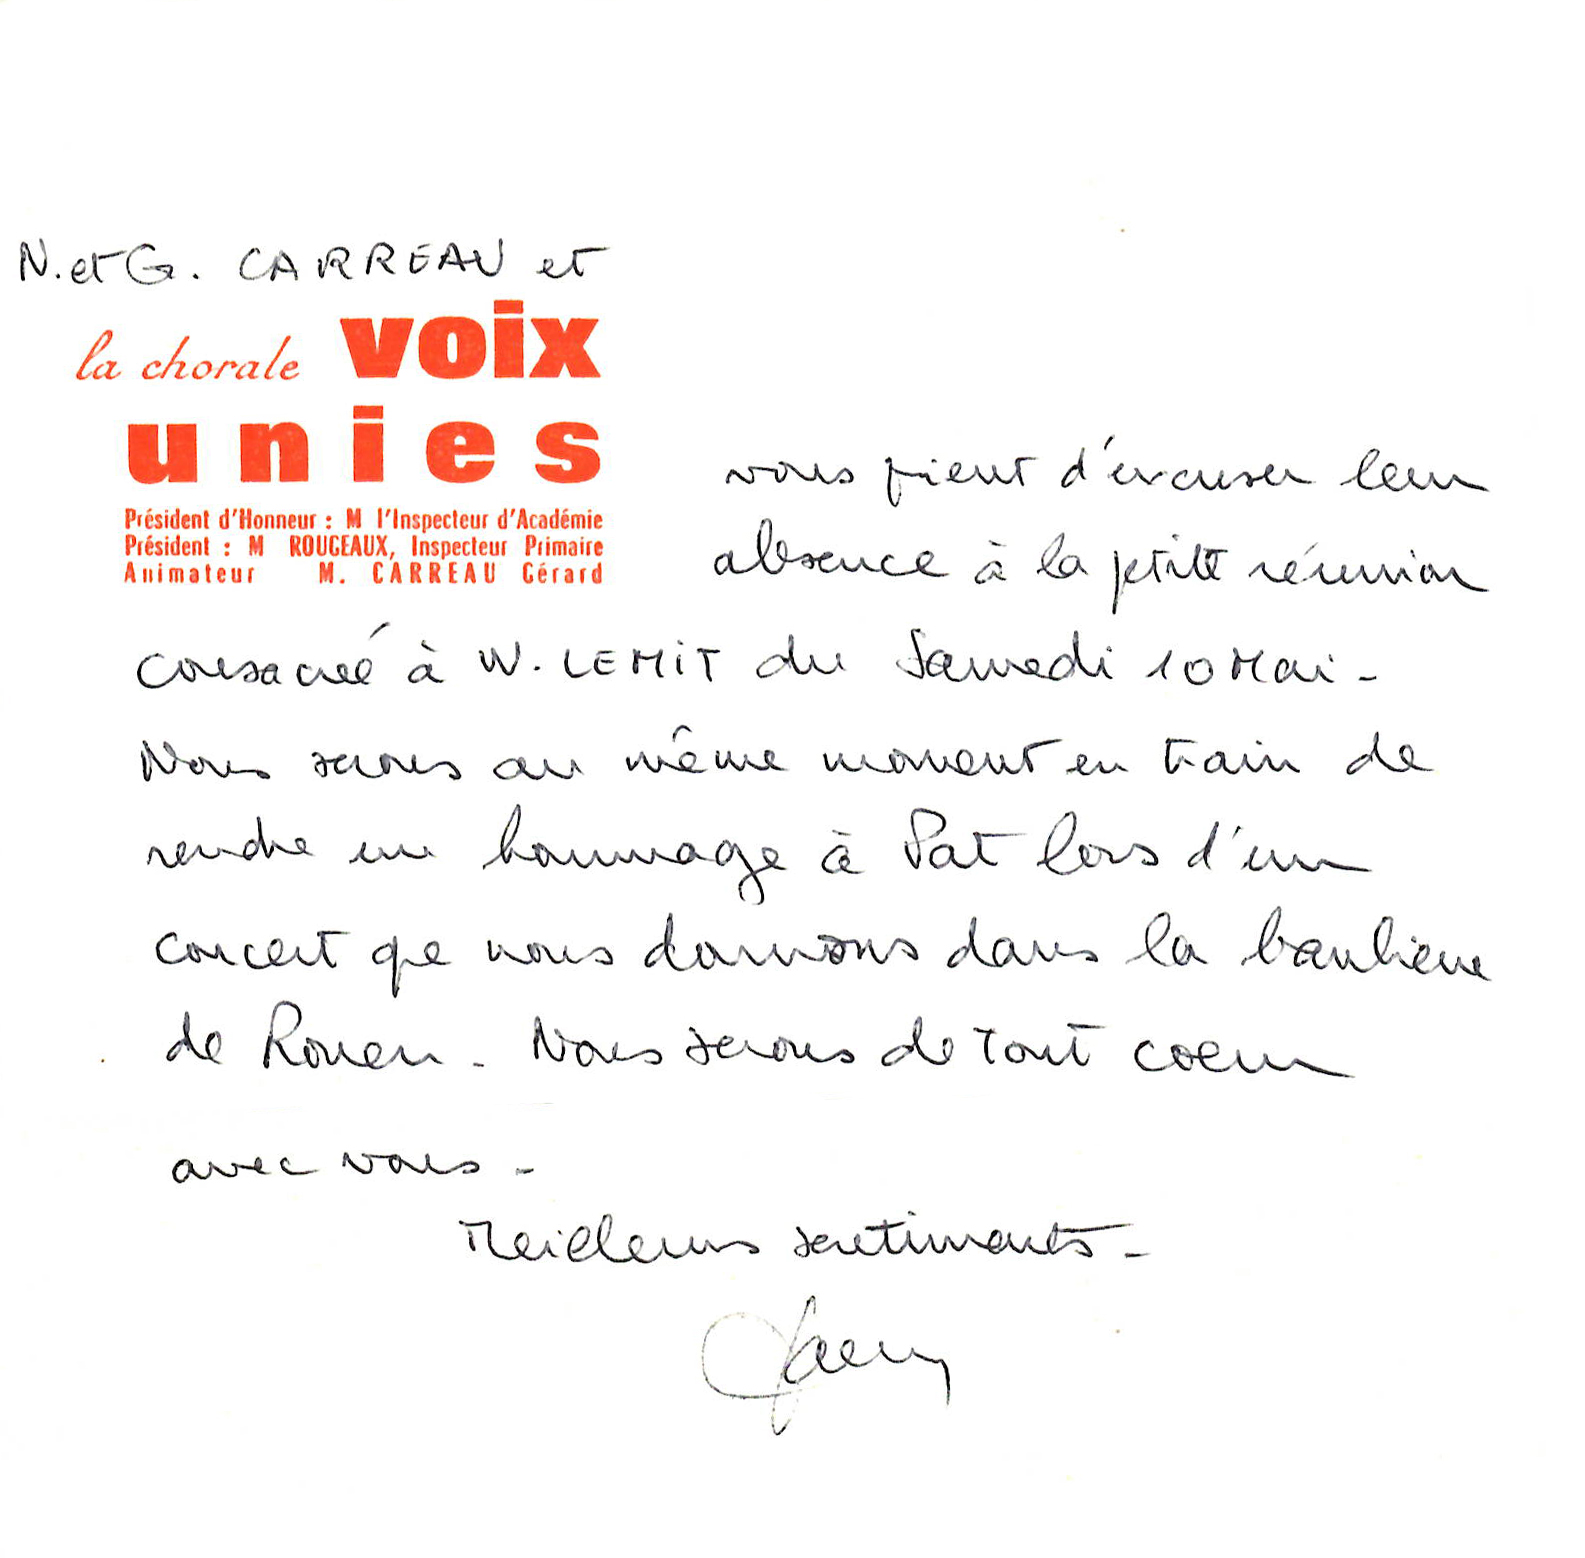 N. et G. CARREAU et
la chorale voix
unies
Président d'Honneur : M l'Inspecteur d'Académie
Président : M ROUGEAUX, Inspecteur Primaire
Animateur M. CARREAU Gérard
vous prient d'excuser leur
absence à la petite réunion
consacrée à W. LEMIT du Samedi 10 Mai -
Nous serons au même moment en train de
rendre un hommage à Pat lors d'un
concert que nous donnons dans la banlieue
de Rouen - Nous serons de tout coeur
avec vous -
Meilleurs sentiments -